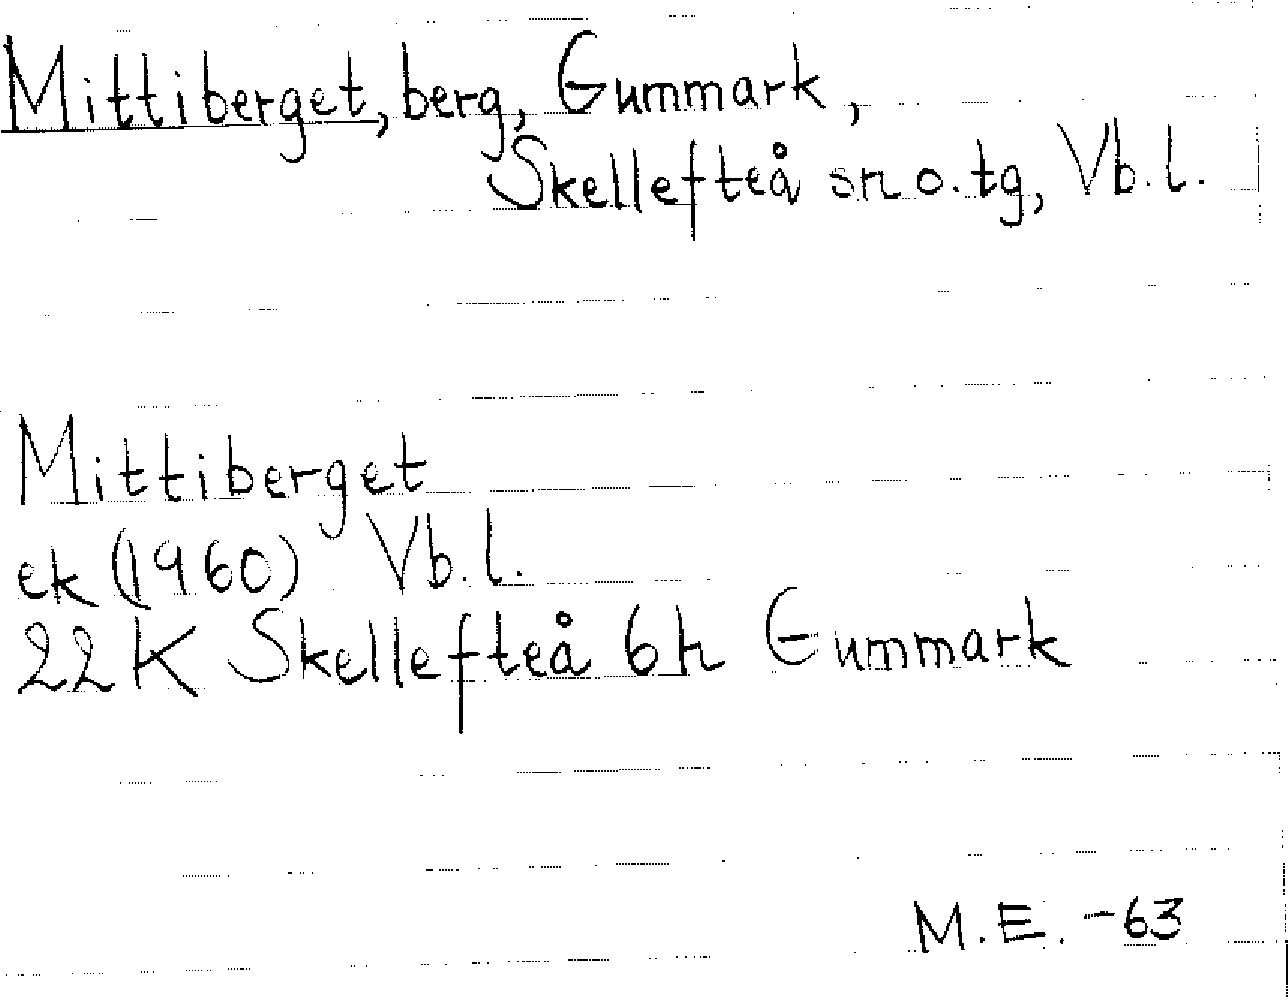 Mittiberget, berg, Gummark,
Skellefteå sn o. tg, Vb. l.
Mittiberget
ek (1960) Vb. l.
22 K Skellefteå 6h Gummark
M. E. -63